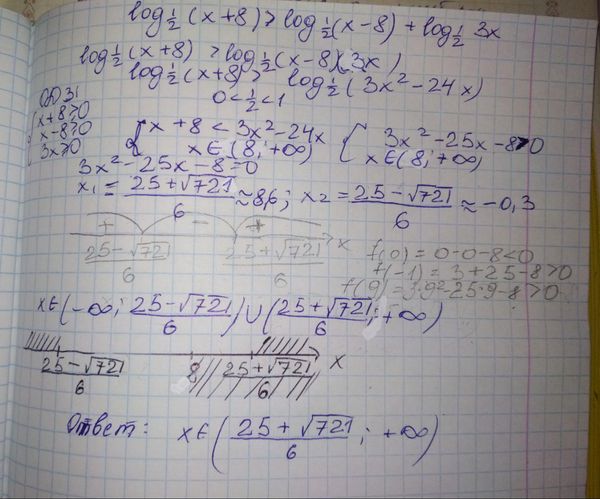 log½(x+8)>log½(x-8)+log½ 3x
log½(x+8)>log½(x-8)(3x)
log½(x+8)> log½(3x²-24x)
0<½<1
ОДЗ:
{x+8>0
x-8>0
3x>0
{x+8<3x²-24x
x∈(8;+∞)
{3x²-25x-8>0
x∈(8;+∞)
3x²-25x-8=0
x₁=(25+√721)/6≈8,6; x₂=(25-√721)/6≈-0,3
+ - +
(25-√721)/6 (25+√721)/6 x
f(0)=0-0-8<0
f(-1)=3+25-8>0
f(9)=3·9²-25·9-8>0
x∈(-∞;(25-√721)/6)∪((25+√721)/6;+∞)
(25-√721)/6 8 (25+√721)/6 x
Ответ: x∈((25+√721)/6;+∞)